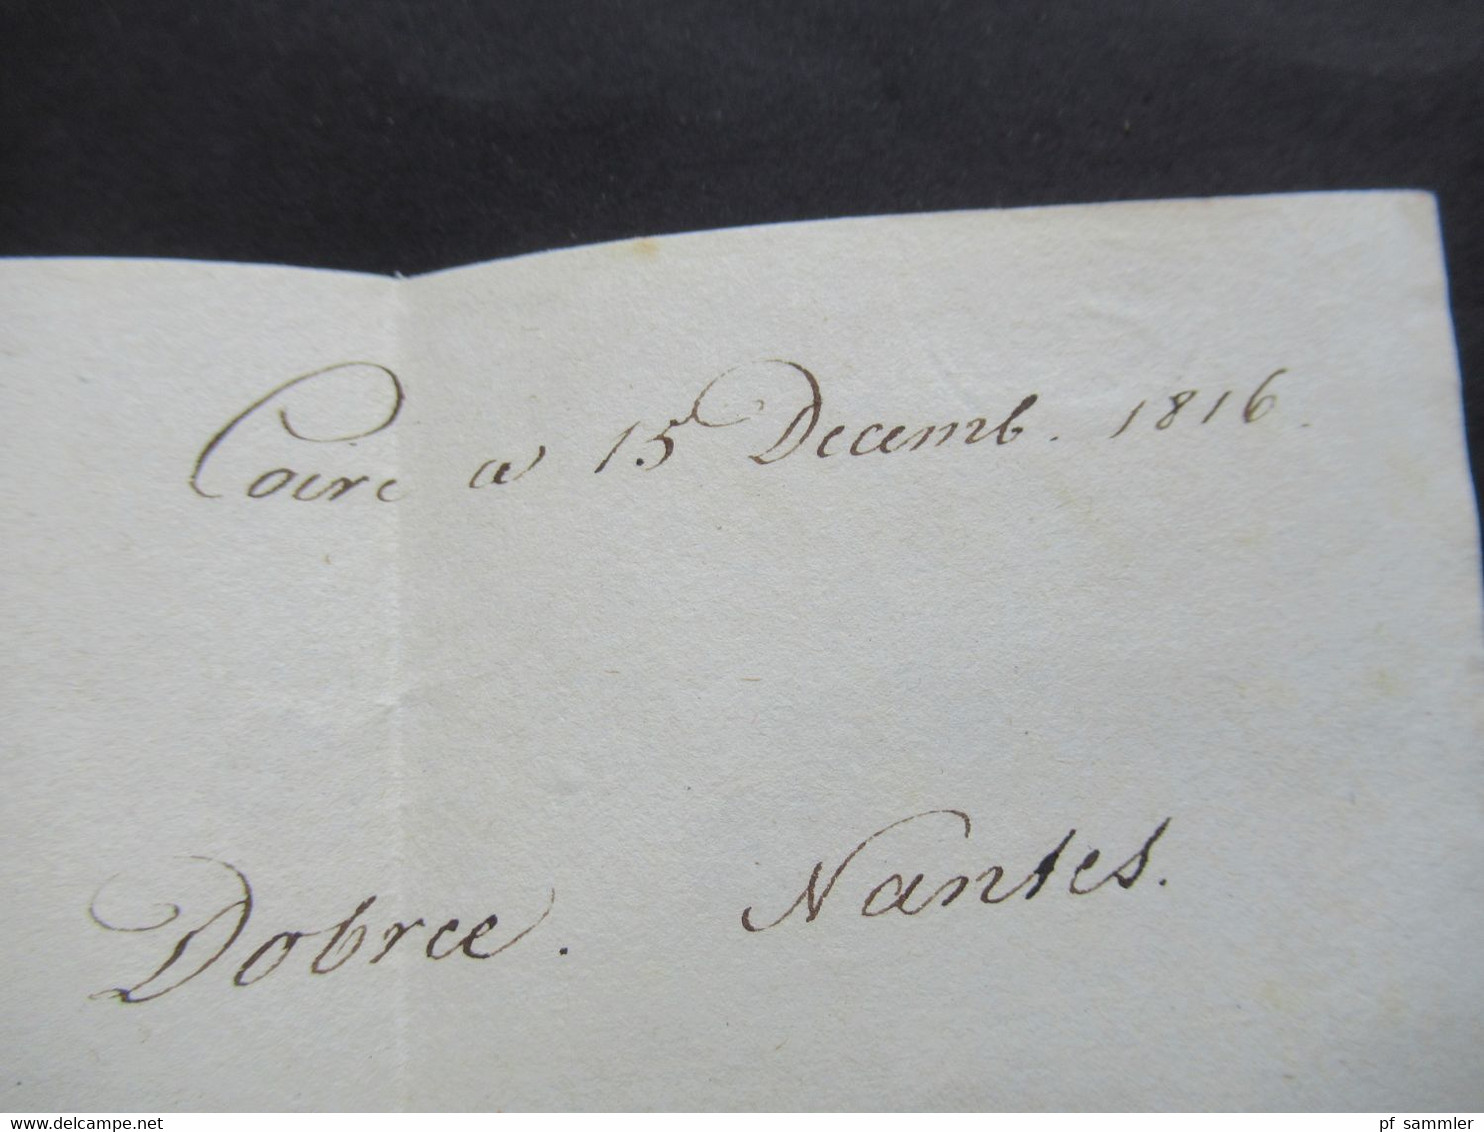 Coire a 15 Decemb. 1816.
Dobree. Nantes.
www.delcampe.net
pf_sammler